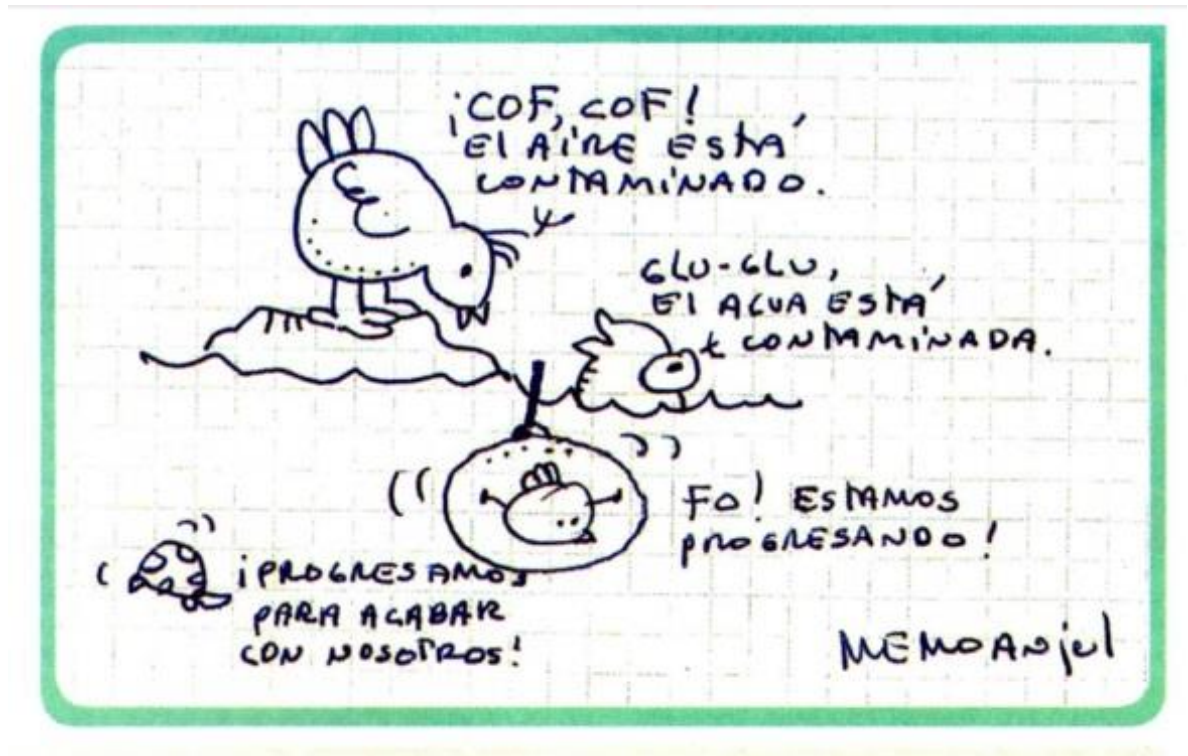 ¡COF, COF!
El AIRE ESTÁ
CONTAMINADO.
GLU-GLU,
El AGUA ESTÁ
CONTAMINADA.
FO! ESTAMOS
PROGRESANDO!
¡PROGRESAMOS
PARA ACABAR
CON NOSOTROS!
MEMOANjel